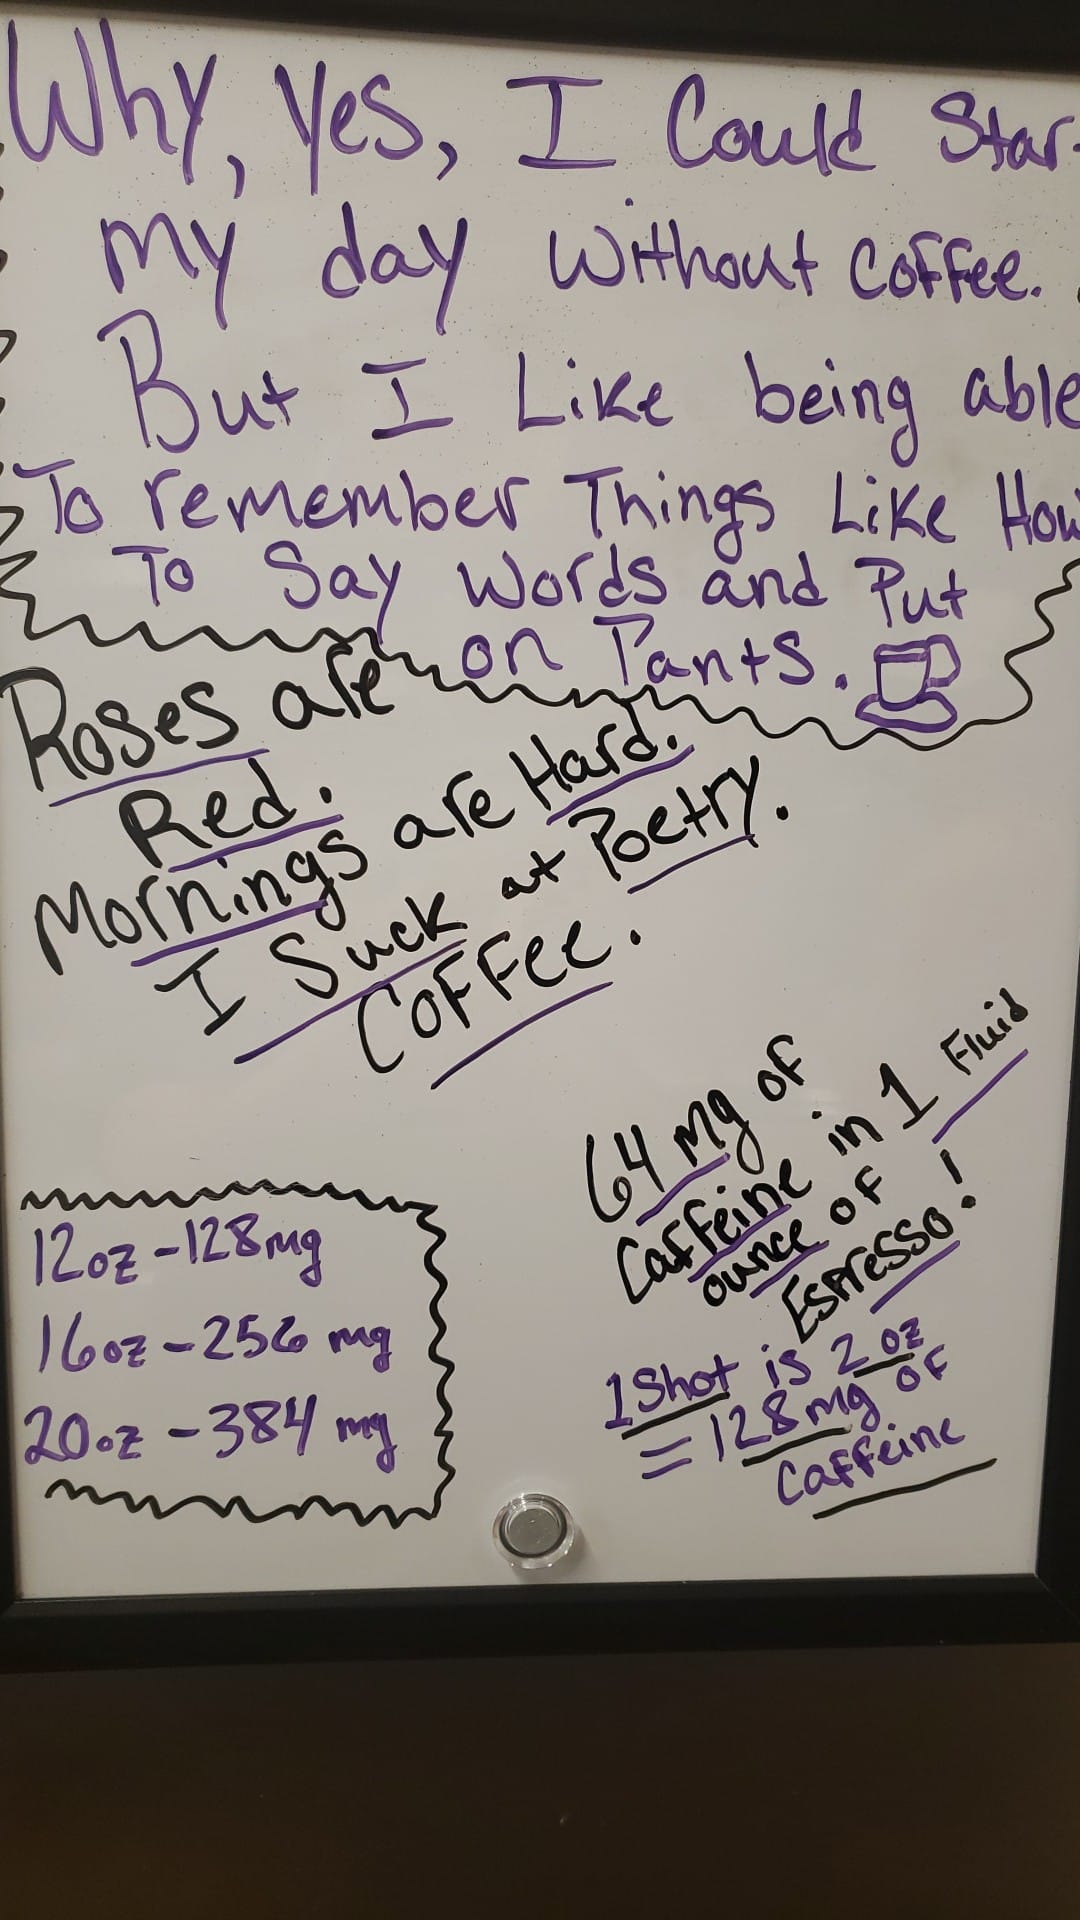 Why, Yes, I Could Star
my day Without Coffee.
But I Like being able
To remember Things Like How
To Say Words and Put
on Pants.
Roses are
Red.
Mornings are Hard.
I Suck at Poetry.
Coffee.
64 mg of
Caffeine in 1 Fluid
ounce of
Espresso!
1 Shot is 2 oz
= 128 mg of
Caffeine
12oz - 128mg
16oz - 256 mg
20oz - 384 mg